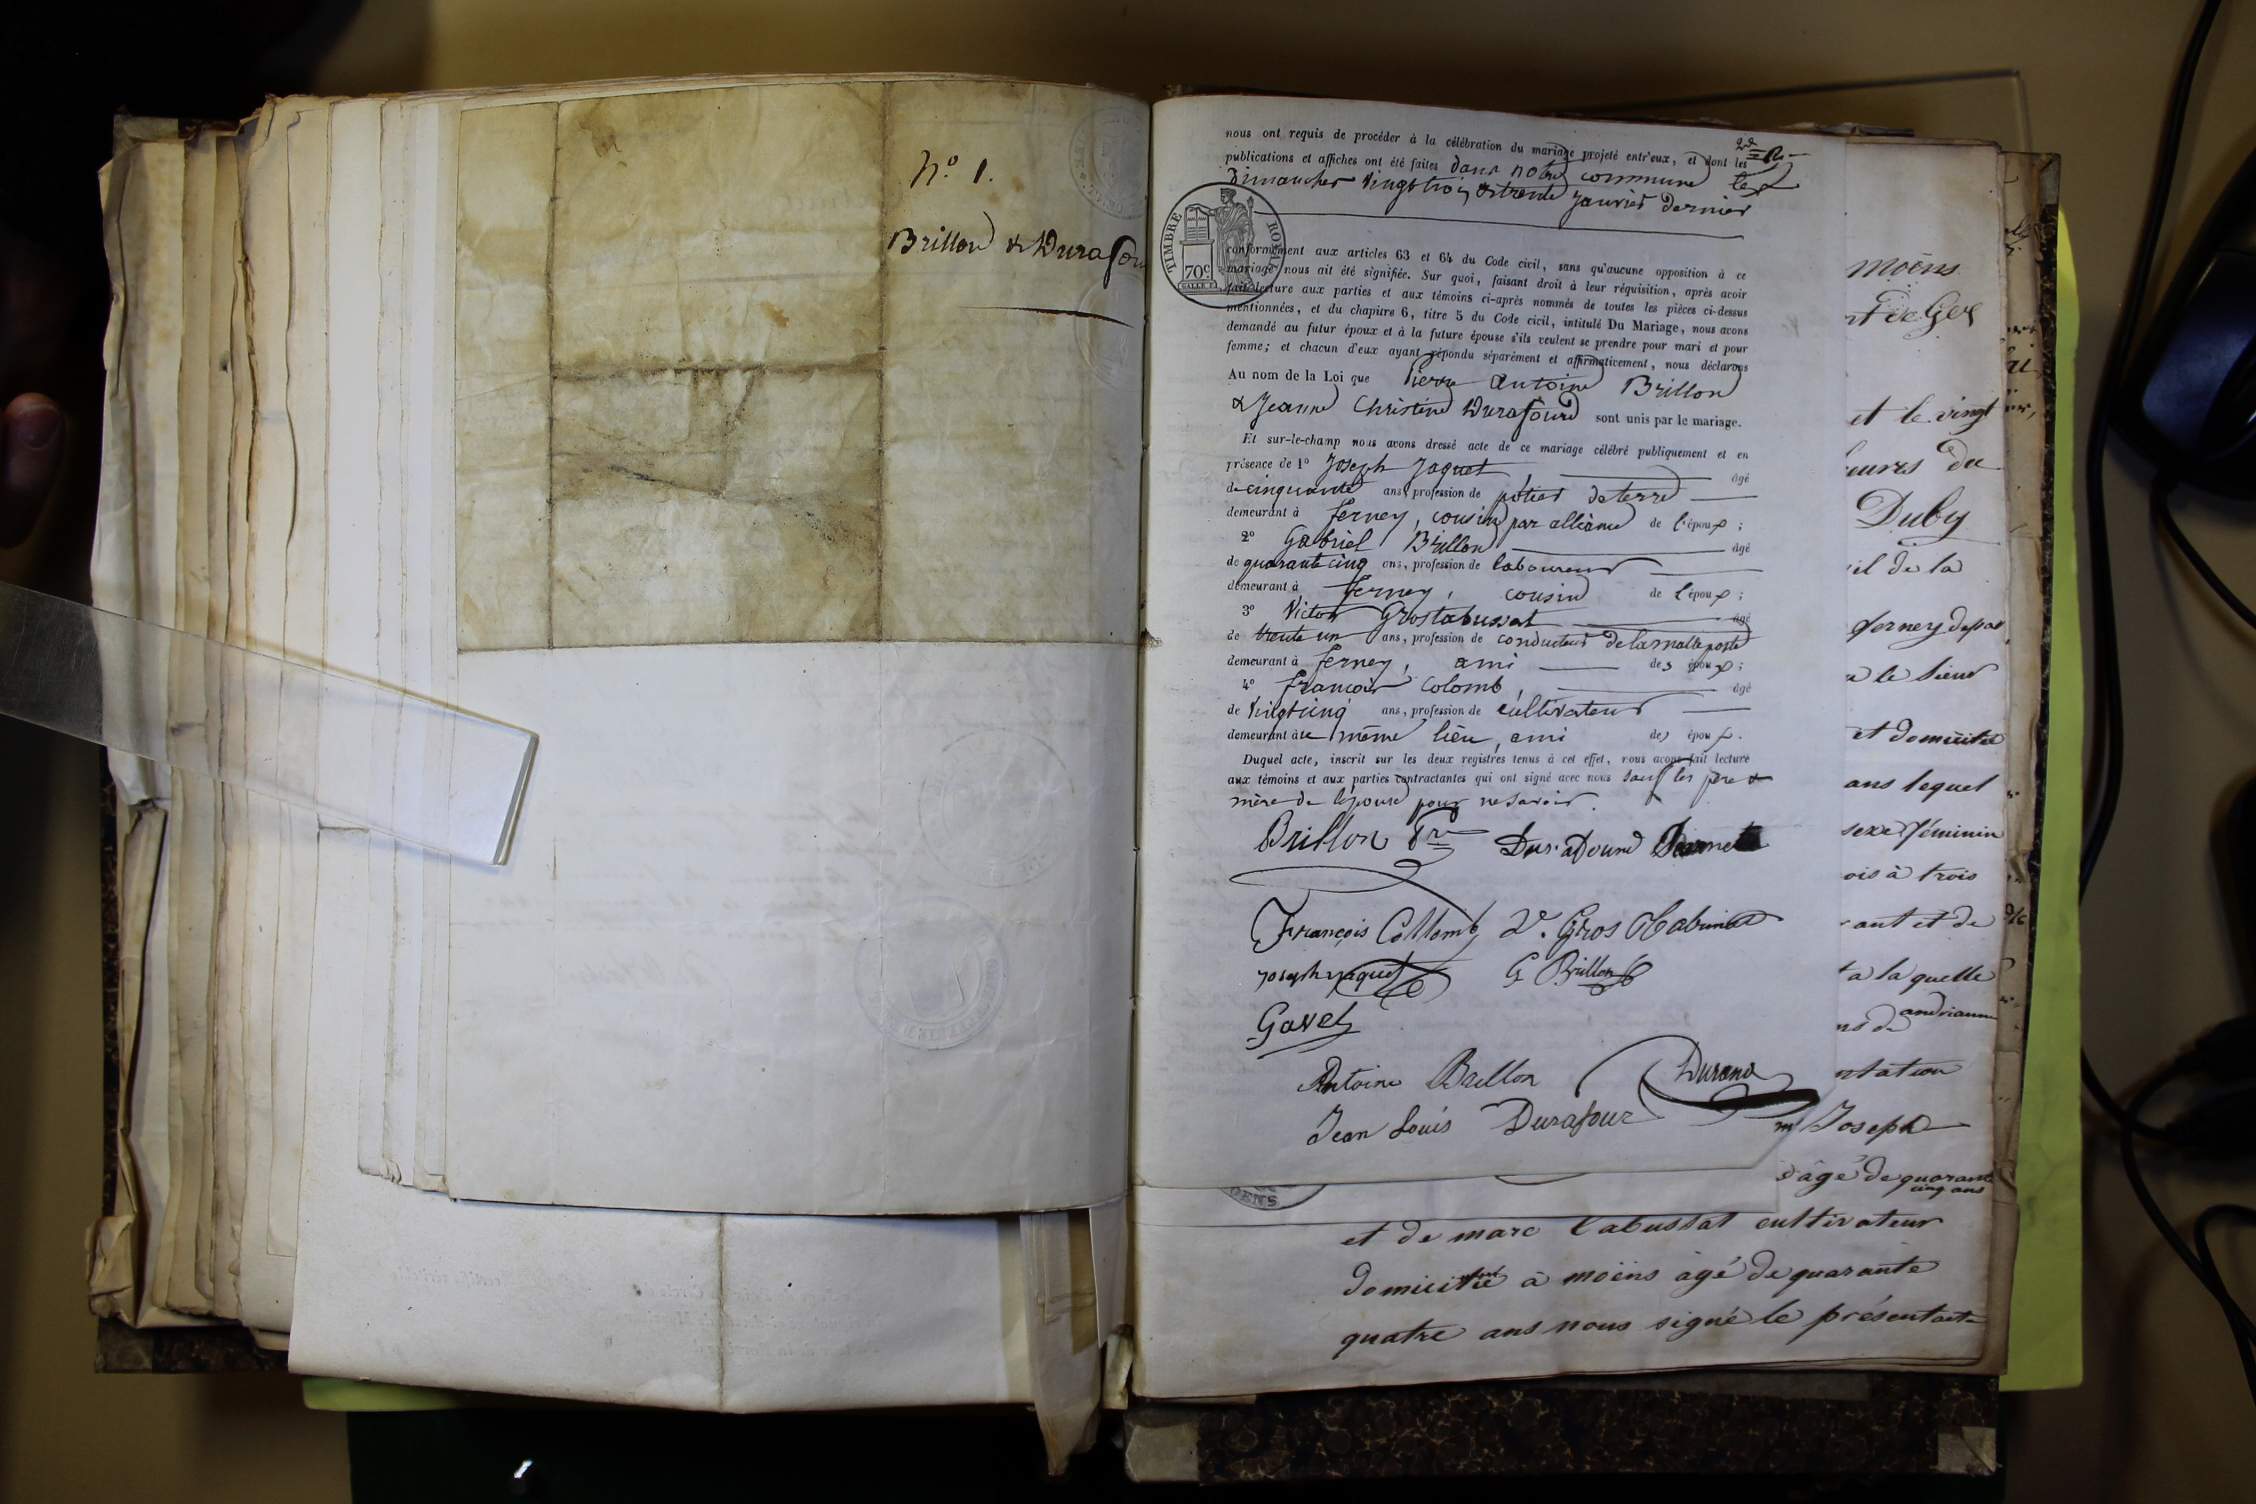 N.º 1.
Brillon & Durafou
nous ont requis de procéder à la célébration du mariage projeté entr'eux, et dont les
publications et affiches ont été faites dans notre commune les
Dimanches vingt trois & trente Janvier dernier
TIMBRE ROYAL
70c.
conformément aux articles 63 et 64 du Code civil, sans qu'aucune opposition à ce
mariage nous ait été signifiée. Sur quoi, faisant droit à leur réquisition, après avoir
fait lecture aux parties et aux témoins ci-après nommés de toutes les pièces ci-dessus
mentionnées, et du chapitre 6, titre 5 du Code civil, intitulé Du Mariage, nous avons
demandé au futur époux et à la future épouse s'ils veulent se prendre pour mari et pour
femme; et chacun d'eux ayant répondu séparément et affirmativement, nous déclarons
Au nom de la Loi que Pierre Antoine Brillon
& Jeanne Christine Durafourd sont unis par le mariage.
Et sur-le-champ nous avons dressé acte de ce mariage célébré publiquement et en
présence de 1º Joseph Jaquet âgé
de cinquante ans, profession de pôtier de terre
demeurant à Ferney, cousin par alliance de l'époux;
2º Gabriel Brillon âgé
de quarante cinq ans, profession de laboureur
demeurant à Ferney, cousin de l'époux;
3º Victor Grostabussat âgé
de trente un ans, profession de conducteur de la malle poste
demeurant à Ferney, ami des époux;
4º François Colomb, âgé
de vingt cinq ans, profession de cultivateur
demeurant au même lieu, ami des époux.
Duquel acte, inscrit sur les deux registres tenus à cet effet, nous avons fait lecture
aux témoins et aux parties contractantes qui ont signé avec nous sauf les père &
mère de l'épouse pour ne savoir.
Brillon Pre Durafourd
François Collomb V. Gros
Joseph jaquet G Brillon
Gavel
Antoine Brillon Durand
Jean Louis Durafour
moëns
nt de Gex
et le vingt
heures du
Duby
il de la
ferney
a le sieur
et domicilié
ans lequel
sexe féminin
ois à trois
rant et de
ta la quelle
ns de andrianne
ntation
m Joseph
âgé de quarante
cinq ans
et de marc Tabussat cultivateur
domicilié à moëns âgé de quarante
quatre ans nous signé le présent acte